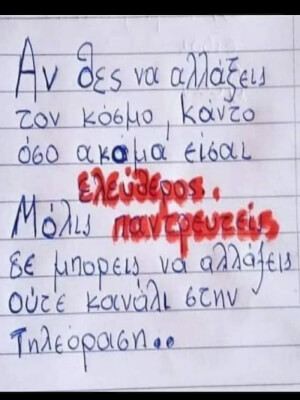 Αν θες να αλλάξεις
τον κόσμο, κάντο
όσο ακόμα είσαι
ελεύθερος.
Μόλις παντρευτείς
δε μπορείς να αλλάξεις
ούτε κανάλι στην
τηλεόραση..